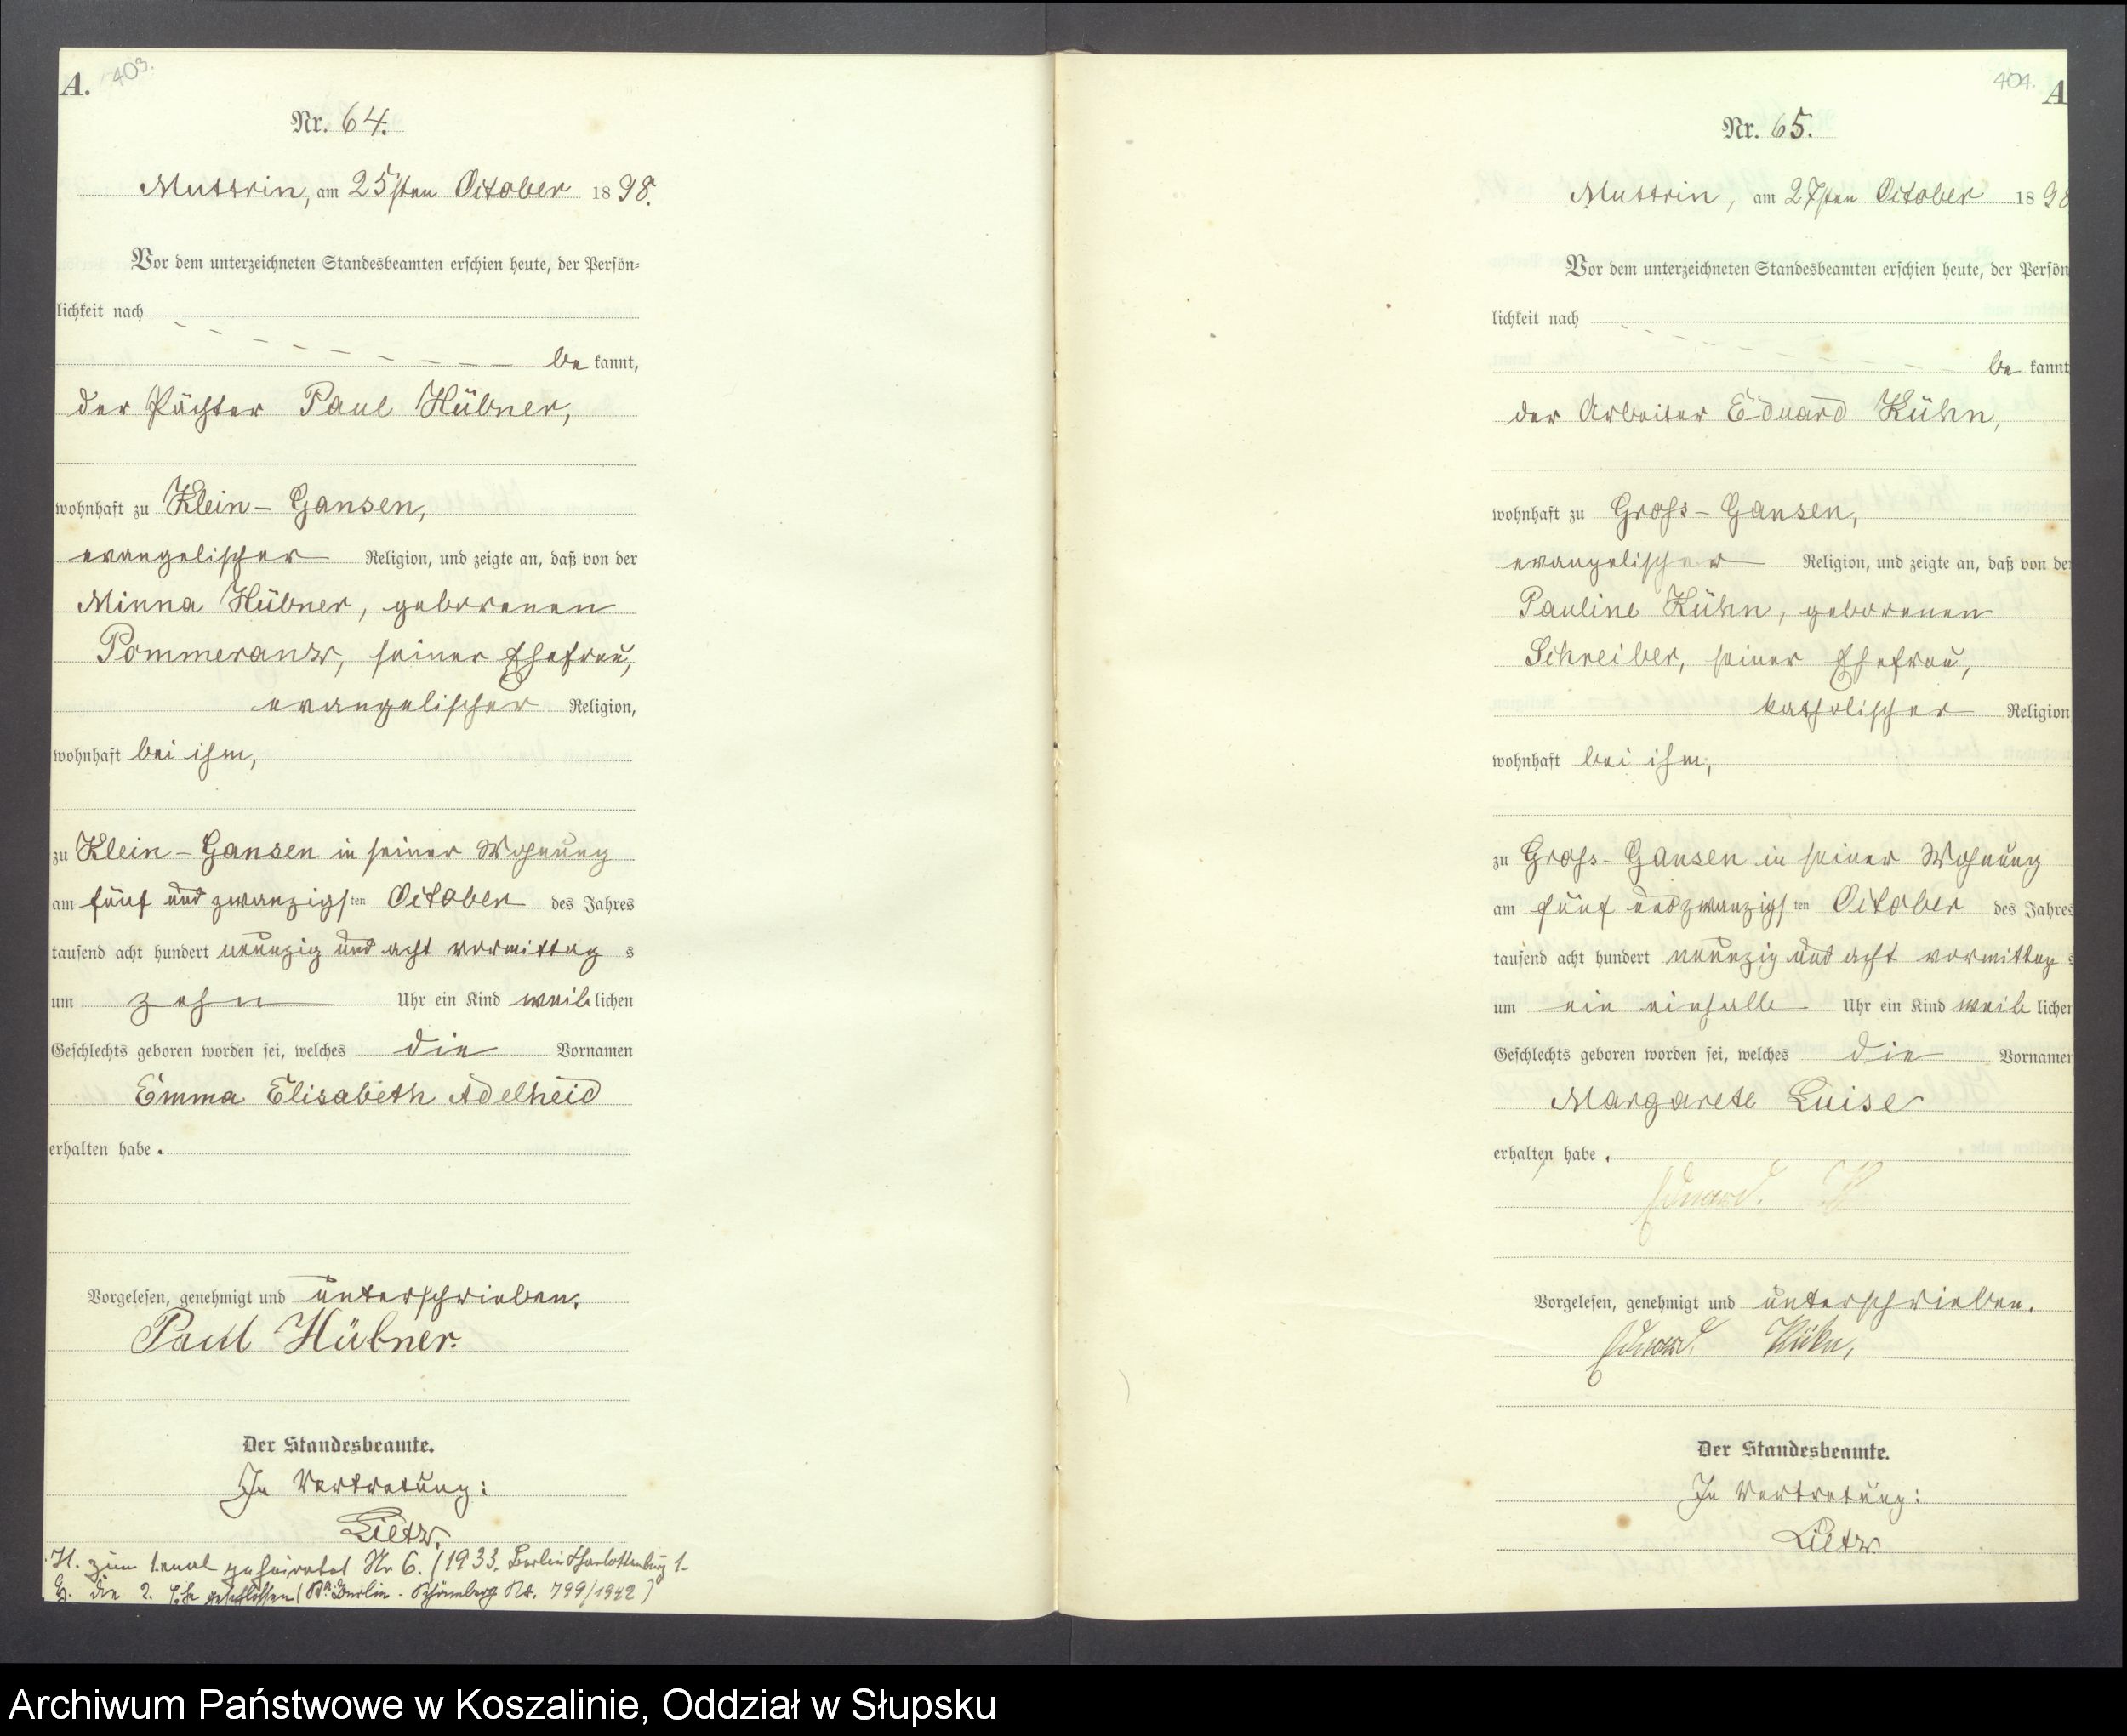 A. 403.
Nr. 64.
Muttrin, am 25sten October 1898.
Vor dem unterzeichneten Standesbeamten erschien heute, der Persön-
lichkeit nach
be kannt,
der Pächter Paul Hübner,
wohnhaft zu Klein-Gansen,
evangelischer Religion, und zeigte an, daß von der
Minna Hübner, geborenen
Pommeranz, seiner Ehefrau,
evangelischer Religion,
wohnhaft bei ihm,
zu Klein-Gansen in seiner Wohnung
am fünf und zwanzigsten October des Jahres
tausend acht hundert neunzig und acht vormittag s
um zehn Uhr ein Kind weiblichen
Geschlechts geboren worden sei, welches die Vornamen
Emma Elisabeth Adelheid
erhalten habe.
Vorgelesen, genehmigt und unterschrieben.
Paul Hübner.
Der Standesbeamte.
In Vertretung:
Lietz.
H. zum 1.mal geheiratet Nr 6. / 1933. Berlin Charlottenburg 1.
die 2. Ehe geschlossen (Berlin-Schöneberg Nr. 799/1942)
404. A
Nr. 65.
Muttrin, am 27sten October 1898
Vor dem unterzeichneten Standesbeamten erschien heute, der Persön
lichkeit nach
be kannt
der Arbeiter Eduard Kühn,
wohnhaft zu Gross-Gansen,
evangelischer Religion, und zeigte an, daß von der
Pauline Kühn, geborenen
Schreiber, seiner Ehefrau,
katholischer Religion
wohnhaft bei ihm,
zu Gross-Gansen in seiner Wohnung
am fünf und zwanzigsten October des Jahres
tausend acht hundert neunzig und acht vormittag s
um ein einhalb Uhr ein Kind weib lichen
Geschlechts geboren worden sei, welches die Vornamen
Margarete Luise
erhalten habe.
Eduard. K
Vorgelesen, genehmigt und unterschrieben.
Eduard Kühn,
Der Standesbeamte.
In Vertretung:
Lietz
Archiwum Państwowe w Koszalinie, Oddział w Słupsku